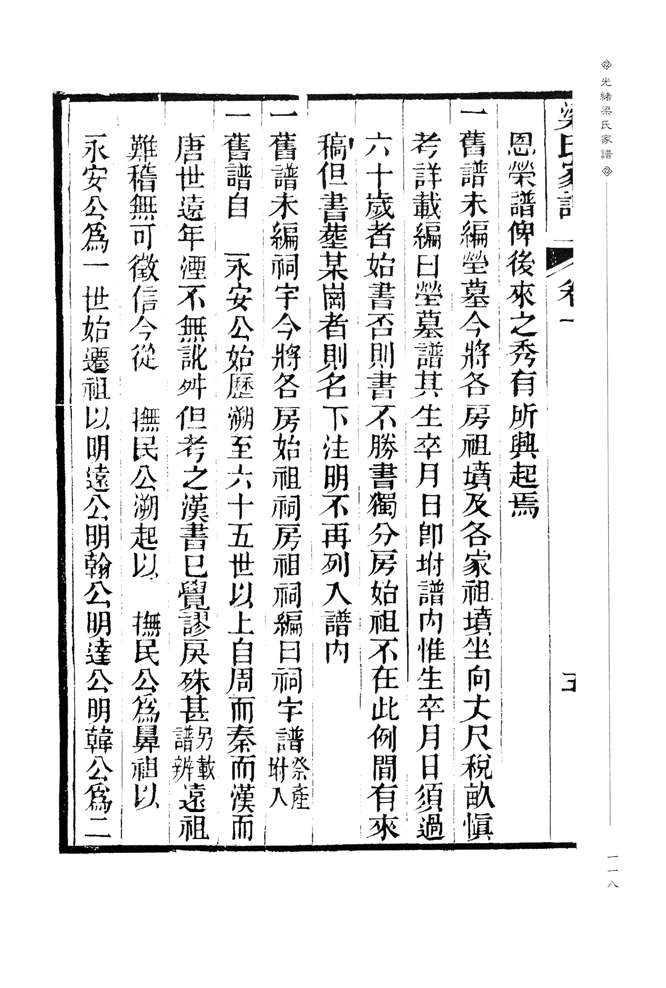 光緒梁氏家譜
一一八
梁氏家譜 卷一 五
恩榮譜俾後來之秀有所興起焉
一舊譜未編塋墓今將各房祖墳及各家祖墳坐向丈尺稅畝愼
考詳載編曰塋墓譜其生卒月日卽坿譜內惟生卒月日須過
六十歲者始書否則書不勝書獨分房始祖不在此例間有來
稿但書塟某崗者則名下注明不再列入譜內
一舊譜未編祠宇今將各房始祖祠房祖祠編曰祠宇譜祭產坿入
一舊譜自 永安公始歷溯至六十五世以上自周而秦而漢而
唐世遠年湮不無訛舛但考之漢書已覺謬戾殊甚另載譜辨遠祖
難稽無可徵信今從 撫民公溯起以 撫民公爲鼻祖以
永安公爲一世始遷祖以明遠公明翰公明達公明韓公爲二